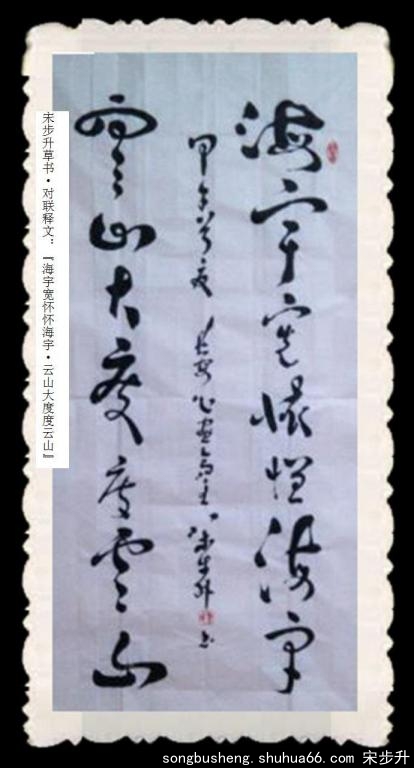 海宇寬懷懷海宇
甲午 長安心畫 宋步升 书
雲山大度度雲山
宋步升草书·对联释文：『海宇宽怀怀海宇·云山大度度云山』
songbusheng.shuhua66.com 宋步升